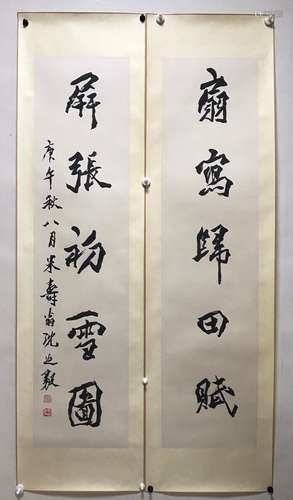 扇寫歸田賦
屏張初雪圖
庚午秋八月米壽翁沈延毅